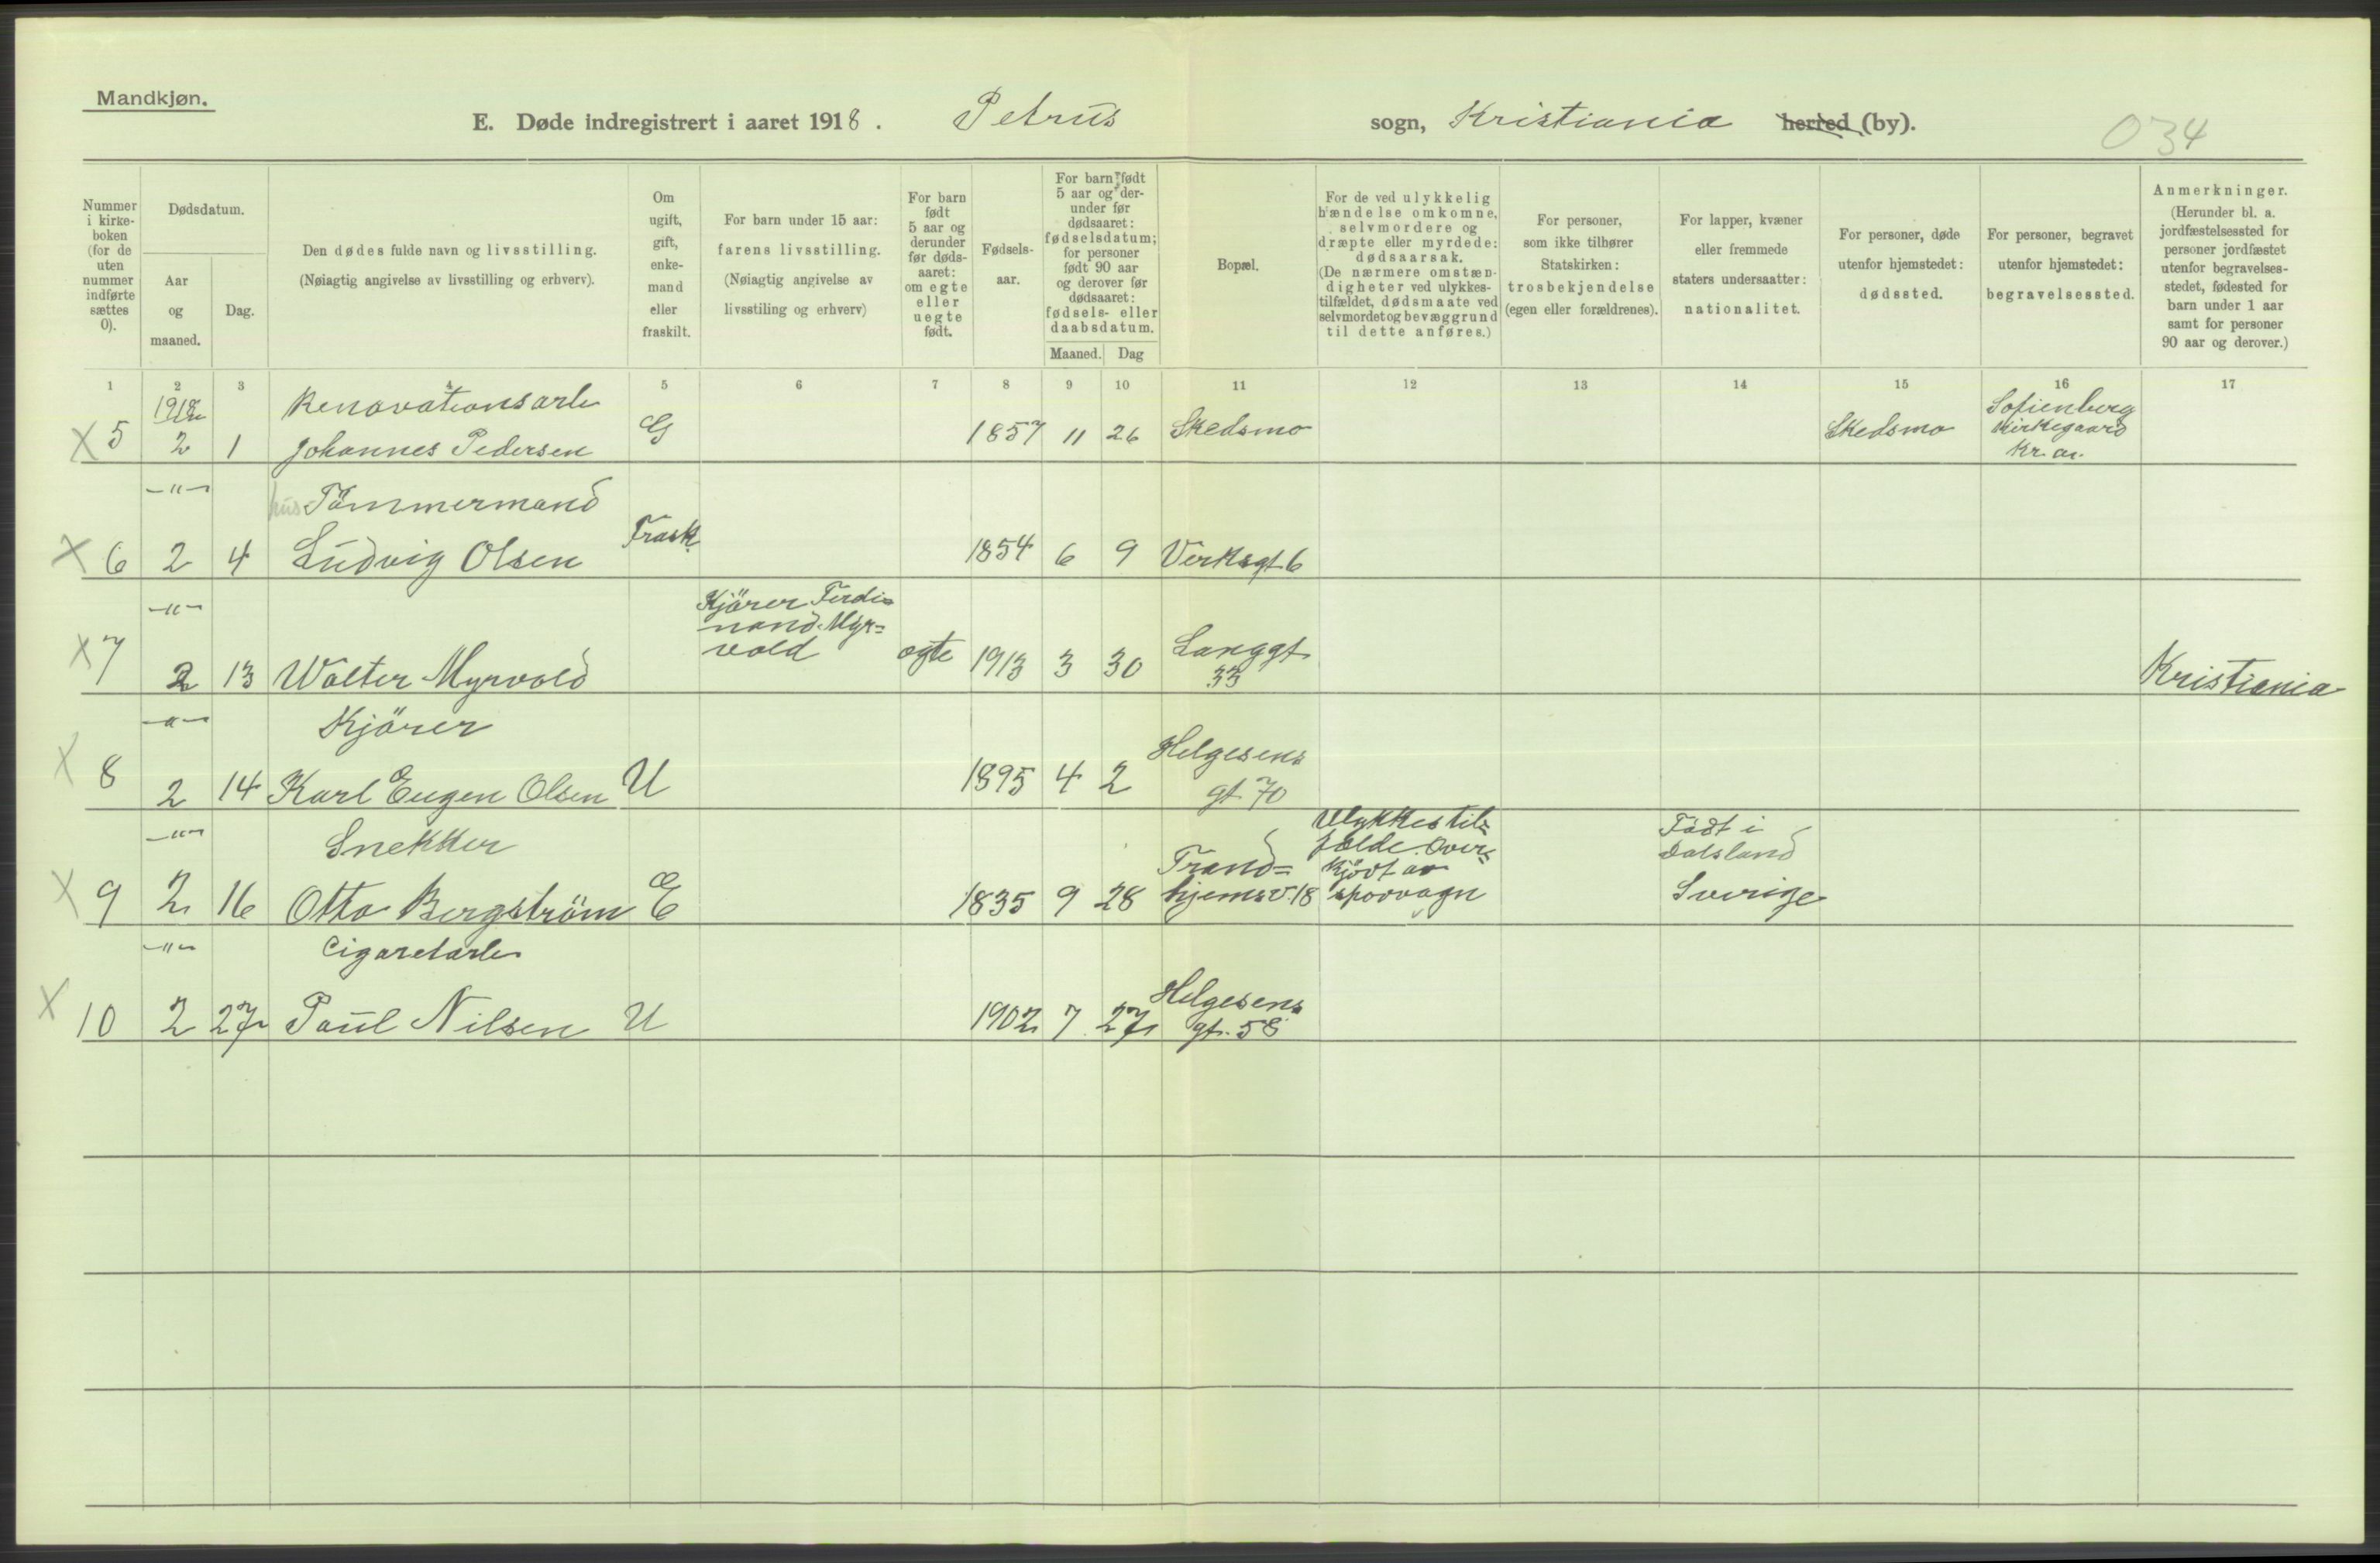 Mandkjøn.
E. Døde indregistrert i aaret 1918. Petrus sogn, Kristiania herred (by).
034
Nummer i kirkeboken (for de uten nummer indførte sættes 0).
Dødsdatum.
Aar og maaned.
Dag.
Den dødes fulde navn og livsstilling.
(Nøiagtig angivelse av livsstilling og erhverv).
Om ugift, gift, enkemand eller fraskilt.
For barn under 15 aar: farens livsstilling.
(Nøiagtig angivelse av livsstiling og erhverv)
For barn født 5 aar og derunder før dødsaaret: om egte eller uegte født.
Fødselsaar.
For barn født 5 aar og derunder før dødsaaret: fødselsdatum; for personer født 90 aar og derover før dødsaaret: fødsels- eller daabsdatum.
Maaned. Dag
Bopæl.
For de ved ulykkelig hændelse omkomne, selvmordere og dræpte eller myrdede: dødsaarsak.
(De nærmere omstændigheter ved ulykkestilfældet, dødsmaate ved selvmordet og bevæggrund til dette anføres.)
For personer, som ikke tilhører Statskirken: trosbekjendelse (egen eller forældrenes).
For lapper, kvæner eller fremmede staters undersaatter: nationalitet.
For personer, døde utenfor hjemstedet: dødssted.
For personer, begravet utenfor hjemstedet: begravelsessted.
Anmerkninger.
(Herunder bl. a. jordfæstelsessted for personer jordfæstet utenfor begravelsesstedet, fødested for barn under 1 aar samt for personer 90 aar og derover.)
1 2 3 4 5 6 7 8 9 10 11 12 13 14 15 16 17
1918 Renovationsarb Sofienberg
X 5 2 1 Johannes Pedersen G 1857 11 26 Skedsmo Skedsmo Kirkegaard
Kr.a.
-"- hus Tömmermand
X 6 2 4 Ludvig Olsen Frask. 1854 6 9 Verksgt. 6
-"- Kjörer Ferdi-
nand Myr=
X 7 2 13 Walter Myrvold vold ægte 1913 3 30 Langgt. 33 Kristiania
-"- Kjörer
X 8 2 14 Karl Eugen Olsen U 1895 4 2 Helgesens
gt. 70
-"- Snekker Ulykkestil= Födt i
fælde. Over= Dalsland
Trond= kjört av
X 9 2 16 Otto Bergström E 1835 9 28 hjemsv. 18 sporvogn Sverige
-"- Cigaretarb.
X 10 2 27 Paul Nilsen U 1902 7 27 Helgesens
gt. 58